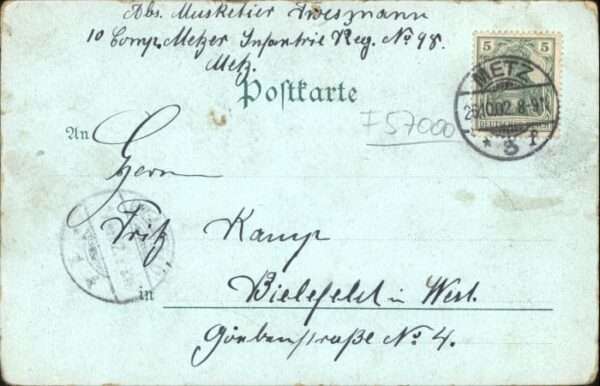 Abs. Musketier
10 Comp. Metzer Infantrie Reg. No 98.
Metz.
Postkarte
5 5
METZ
25.10.02. 8-9V.
* 3
F57000
An
Herrn
Fritz Kamp
in Bielefeld in West.
Göbenstraße No 4.